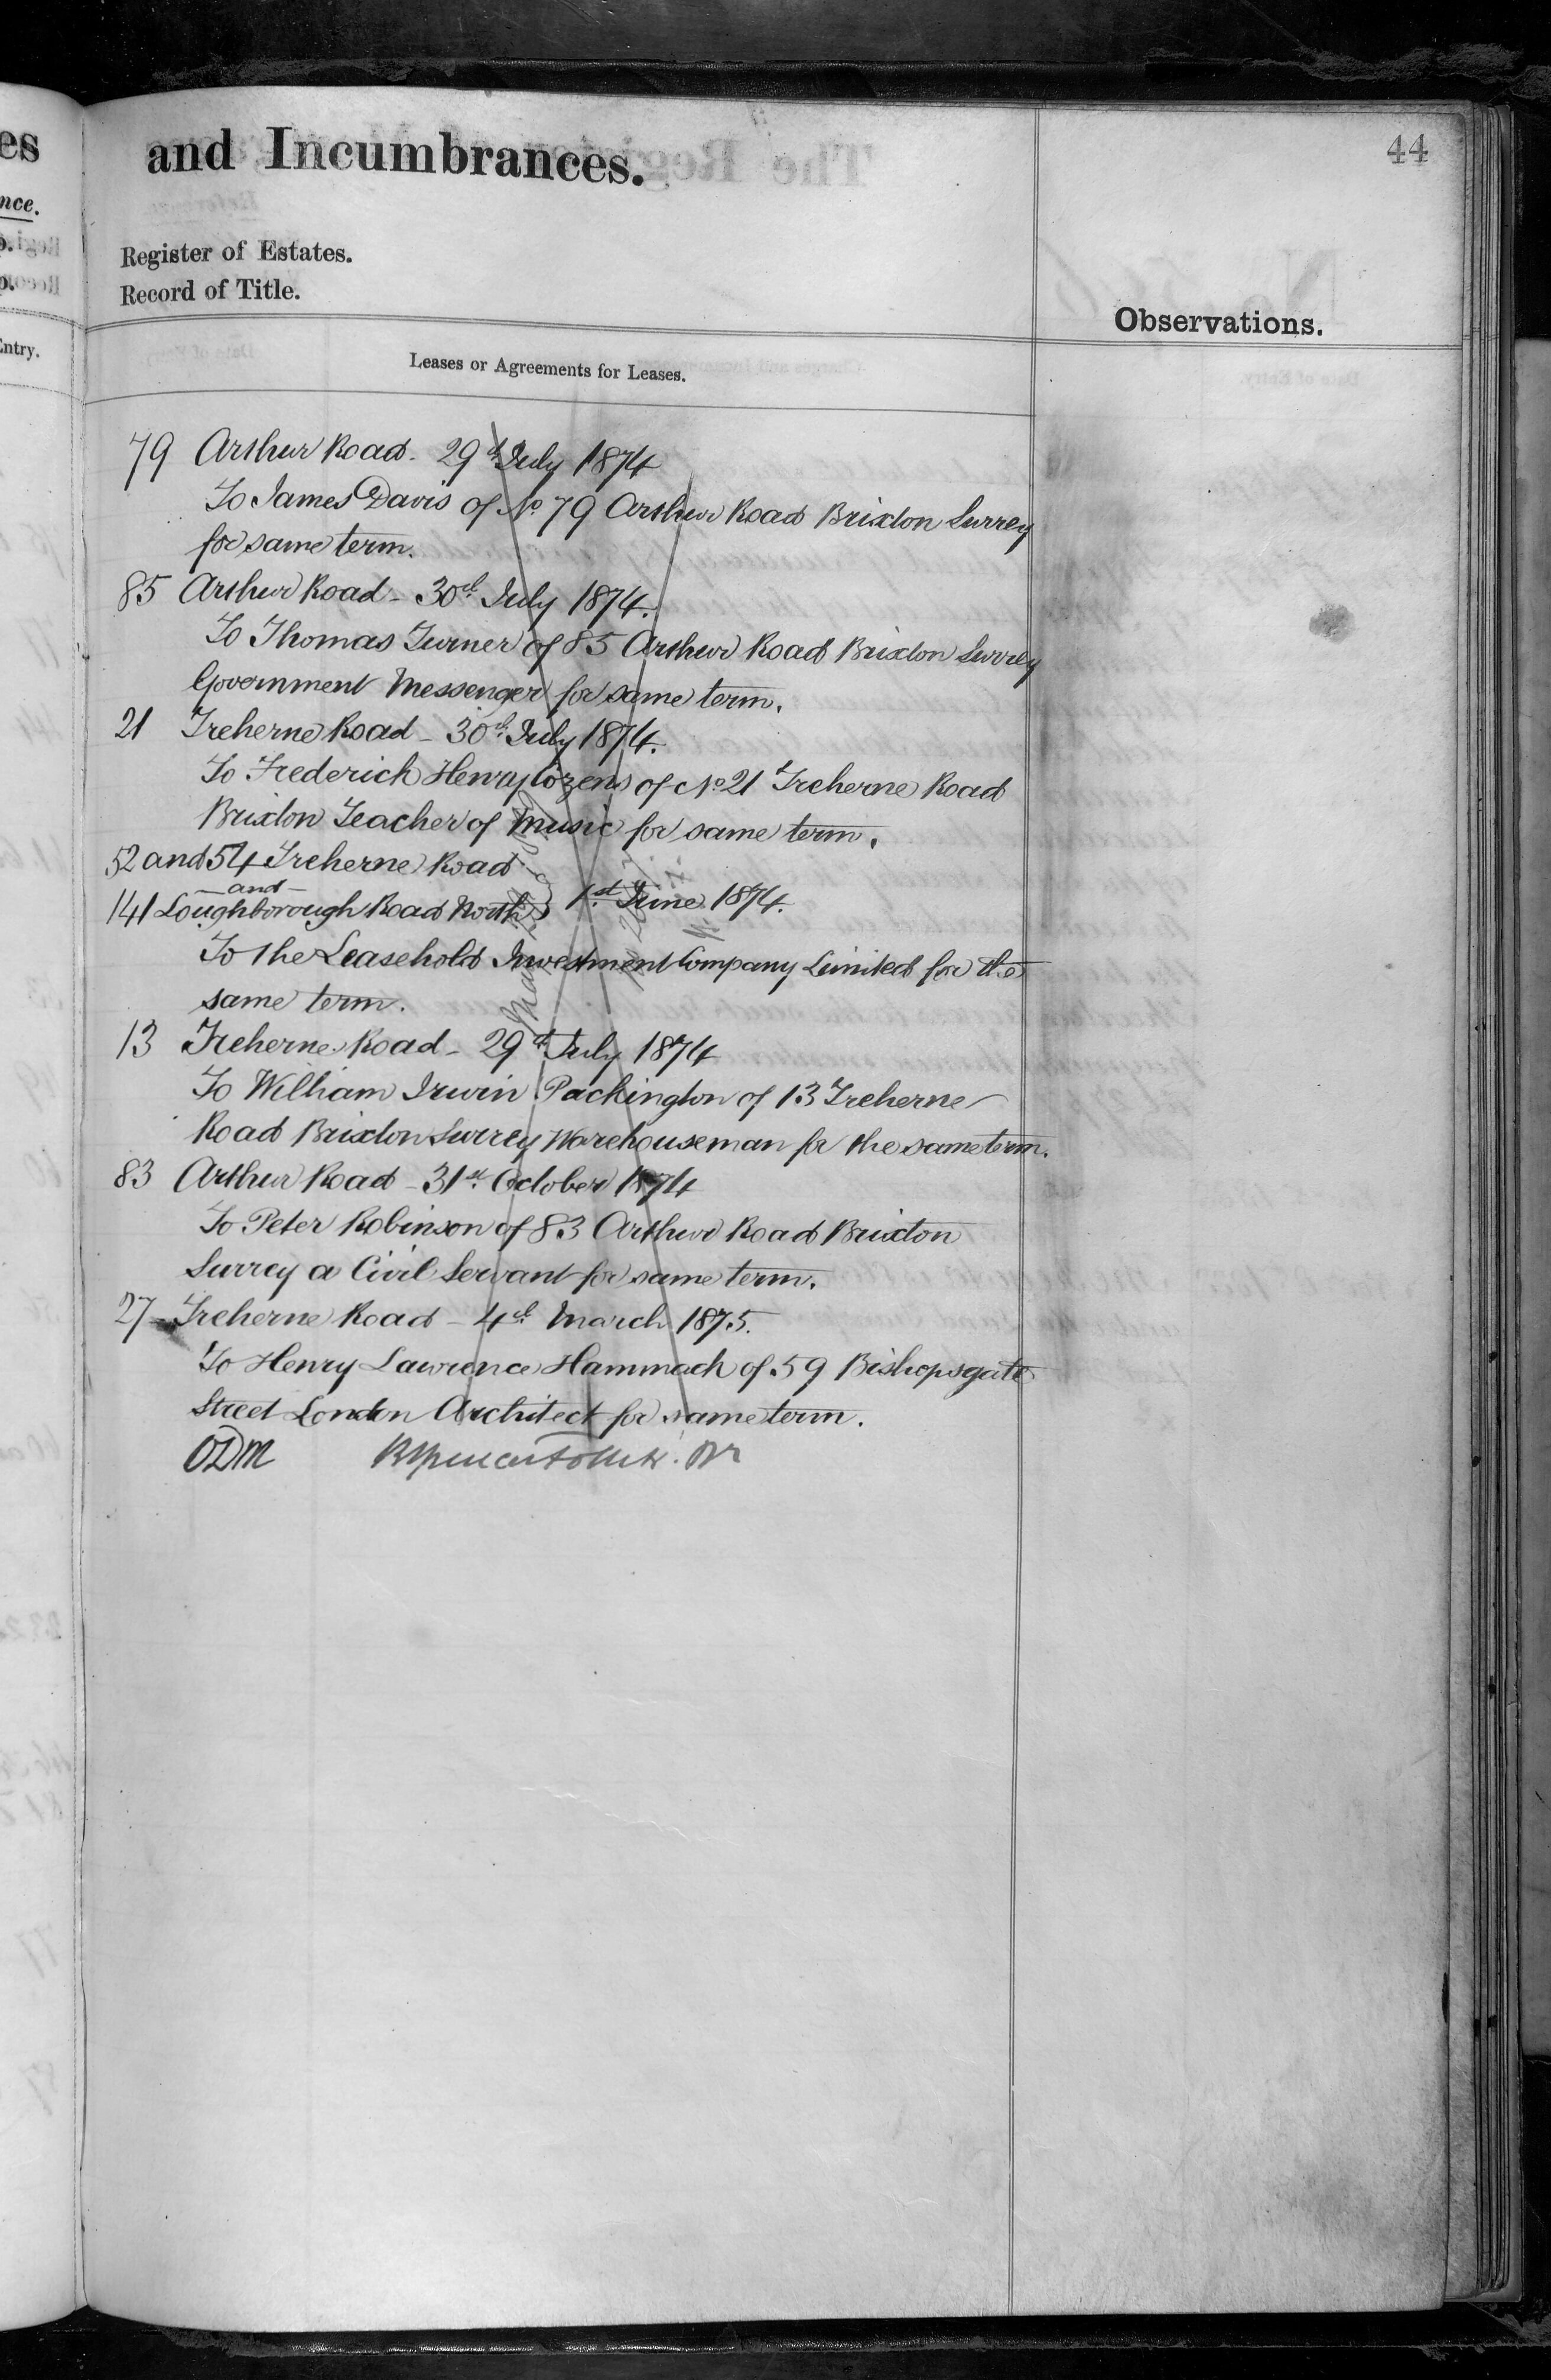 and Incumbrances.
44
Register of Estates.
Record of Title.
Observations.
Leases or Agreements for Leases.
79 Arthur Road. 29th July 1874
To James Davis of No 79 Arthur Road Brixton Surrey
for same term.
85 Arthur Road - 30th July 1874.
To Thomas Turner of 85 Arthur Road Brixton Surrey
Government Messenger for same term.
21 Treherne Road - 30th July 1874.
To Frederick Henry Cozens of No 21 Treherne Road
Brixton Teacher of Music for same term.
52 and 54 Treherne Road
-and-
141 Loughborough Road North } 1st June 1874.
To the Leasehold Investment Company Limited for the
same term.
13 Treherne Road - 29th July 1874
To William Irwin Packington of 13 Treherne
Road Brixton Surrey Warehouseman for the same term.
83 Arthur Road - 31st October 1874
To Peter Robinson of 83 Arthur Road Brixton
Surrey a Civil Servant for same term.
27 Treherne Road - 4th March 1875.
To Henry Lawrence Hammack of 59 Bishopsgate
Street London Architect for same term.
es
nce.
Entry.